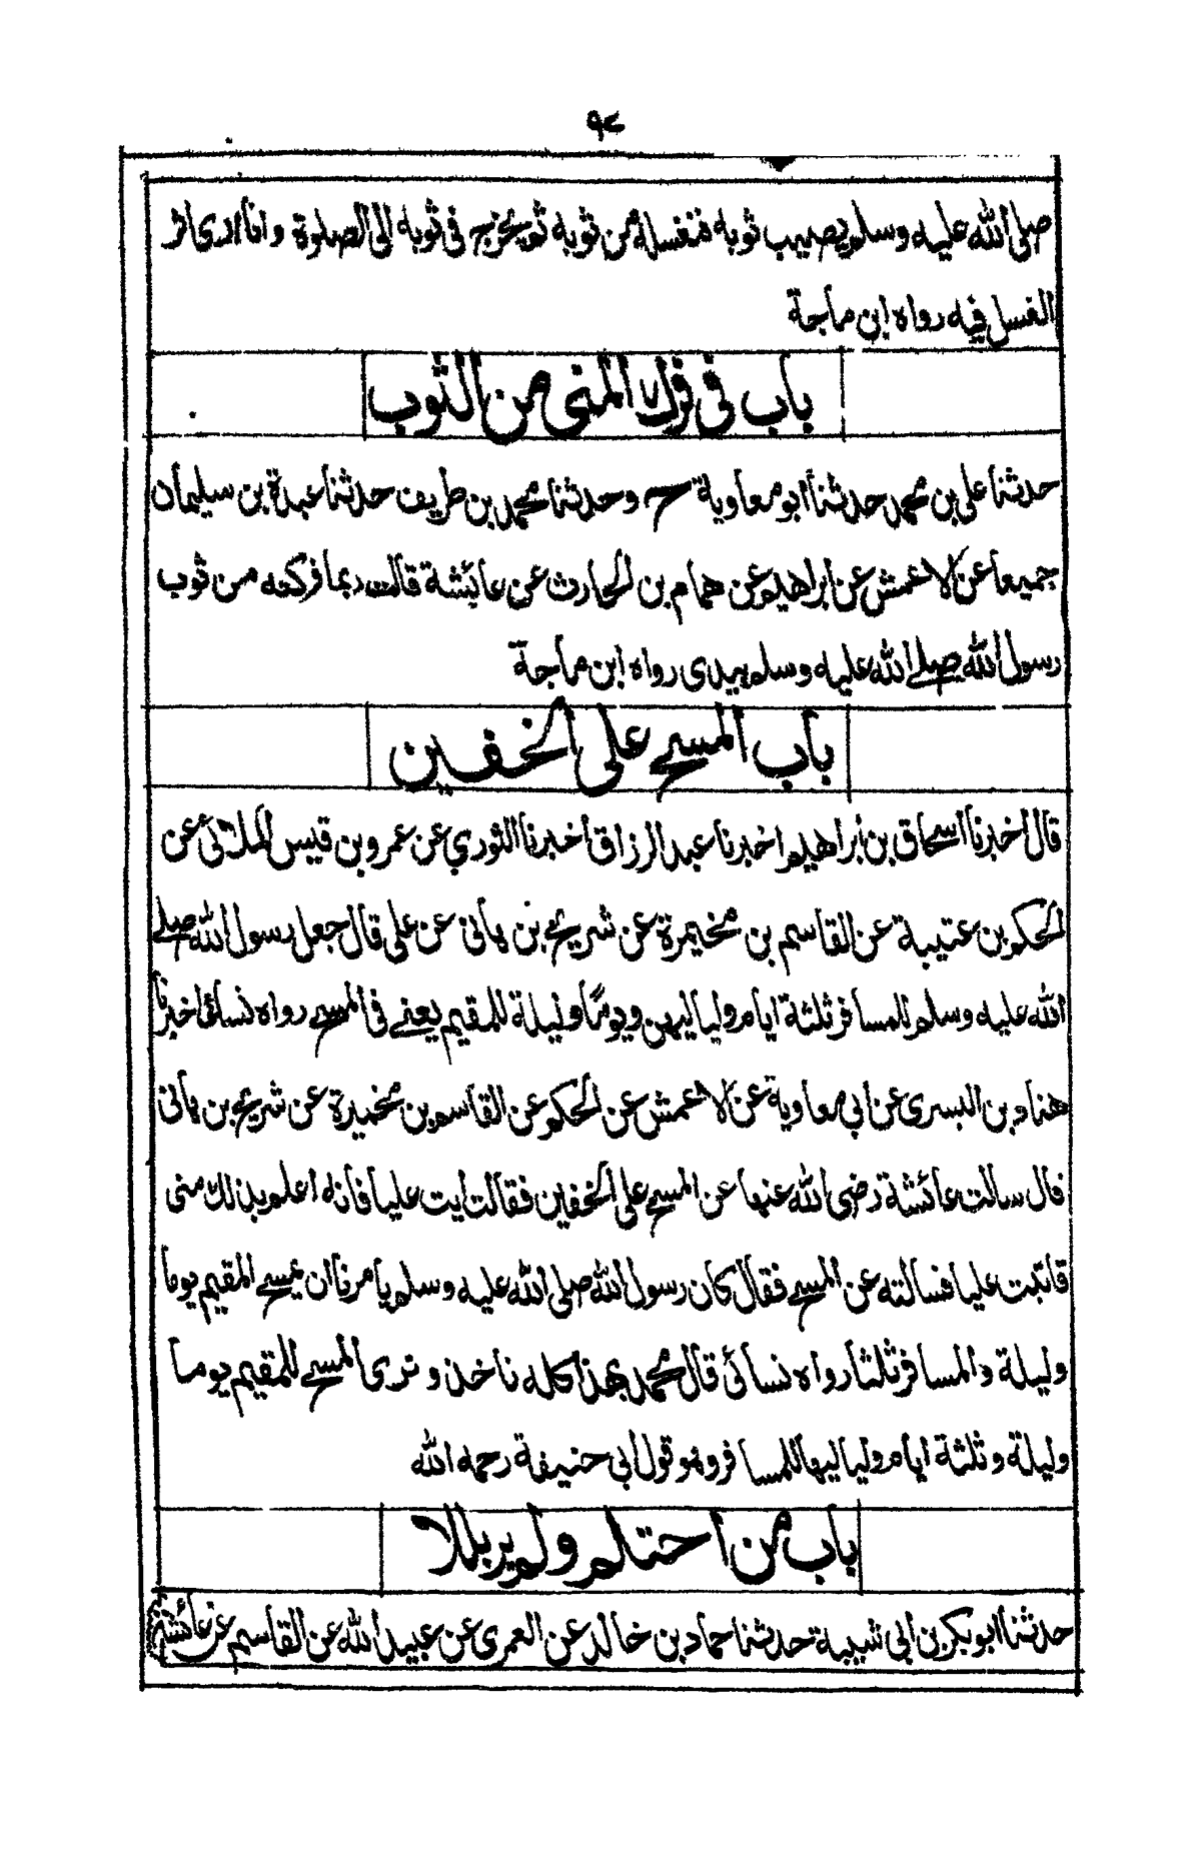 ٩٤
صلى الله عليه وسلم يصيب ثوبه فنغسله من ثوبه ثم يخرج في ثوبه الى الصلوة وانا ارى اثر
الغسل فيه رواه ابن ماجة
باب في فرك المنى من الثوب
حدثنا على بن محمد حدثنا ابو معاوية ح وحدثنا محمد بن طريف حدثنا عبدة بن سليمان
جميعا عن الاعمش عن ابراهيم عن همام بن الحارث عن عايشة قالت ربما فركته من ثوب
رسول الله صلے الله عليه وسلم بيدى رواه ابن ماجة
باب المسح على الخفين
قال اخبرنا اسحاق بن ابراهيم اخبرنا عبد الرزاق اخبرنا الثوري عن عمرو بن قيس الملائى عن
الحكم بن عتيبة عن القاسم بن مخيمرة عن شريح بن هانى عن على قال جعل رسول الله صلے
الله عليه وسلم للمسافر ثلثة ايام ولياليهن ويومًا وليلة للمقيم يعنے فى المسح رواه نسائى اخبرنا
هناد بن السرى عن ابي معاوية عن الاعمش عن الحكم عن القاسم بن مخيمرة عن شريح بن هانى
قال سالت عائشة رضى الله عنها عن المسح على الخفين فقالت ايت عليا فانه اعلم بذلك منى
فاتيت عليا فسالته عن المسح فقال كان رسول الله صلى الله عليه وسلم يامرنا ان يمسح المقيم يوما
وليلة والمسافر ثلثا رواه نسائى قال محمد بهذا كله ناخذ و نرى المسح للمقيم يوما
وليلة وثلثة ايام ولياليها للمسافر وهو قول ابى حنيفة رحمه الله
باب من احتلم ولم ير بللا
حدثنا ابو بكر بن ابى شيبة حدثنا حماد بن خالد عن العمرى عن عبيد الله عن القاسم عن عائشة